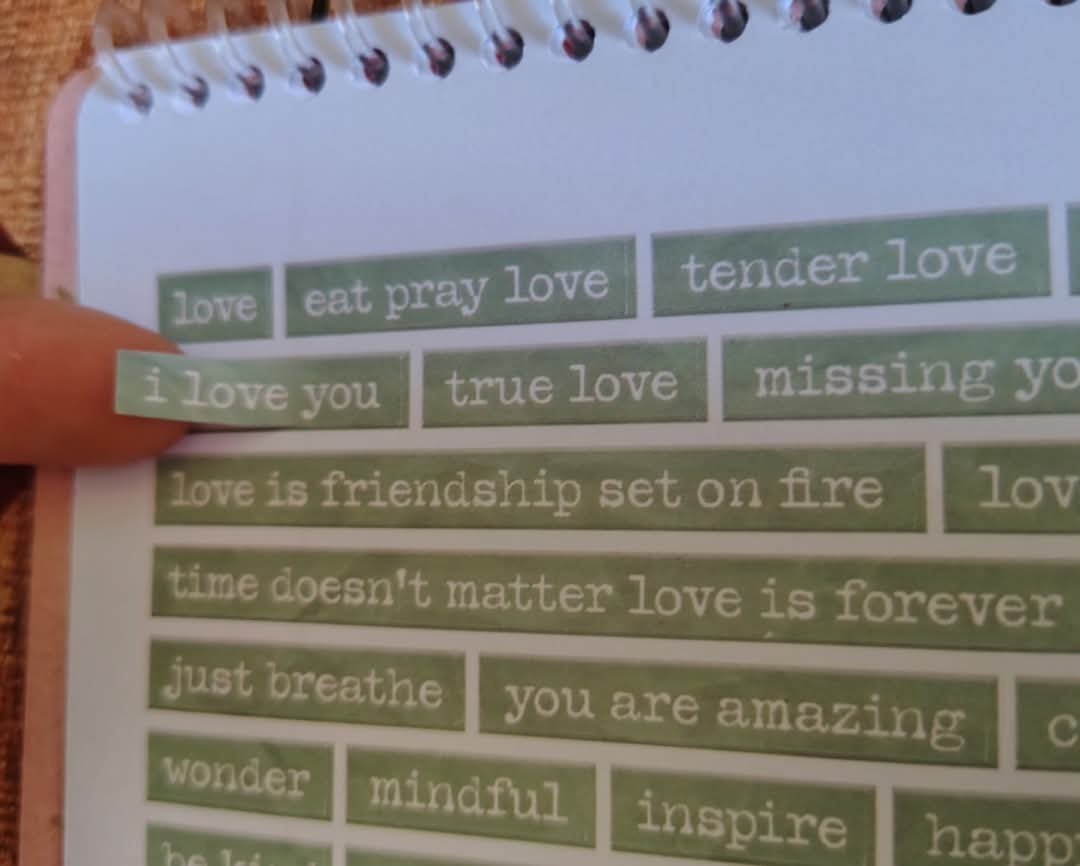 love eat pray love tender love
i love you true love missing yo
love is friendship set on fire lov
time doesn't matter love is forever
just breathe you are amazing c
wonder mindful inspire happ
be kind